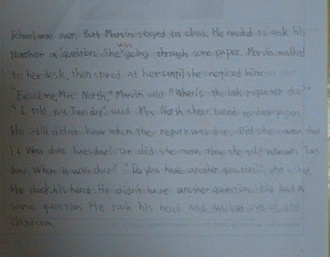 School was over. But Marvin stayed in class. He needed to ask his
teacher a question. She was going through some paper. Marvin walked
to her desk, then stared at her until she noticed him
"Excuse me, Mrs. North," Marvin said "When's the book reporter due?"
"I told you Tuesday" said Mrs. North she returned to her paper
He still didn't know when the report was due. Did she mean that
it was due Tuesday? Or did she mean that she told him on Tues
day when it was due? "Do you have another question?" she
He shook his head. He didn't have another question. He had a
same question He shook his head and walked out of the
Classroom.